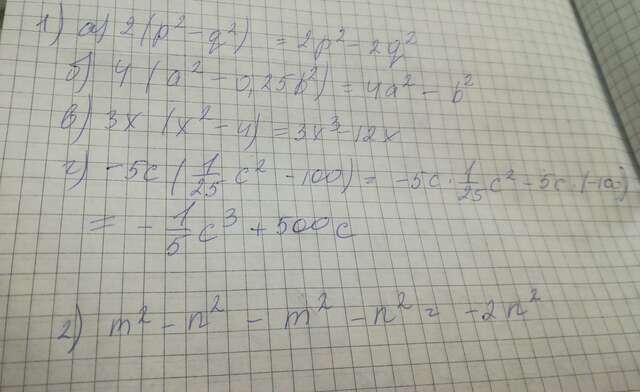 1) а) 2(p² - q²) = 2p² - 2q²
б) 4(a² - 0,25b²) = 4a² - b²
в) 3x(x² - 4) = 3x³ - 12x
г) -5c(1/25 c² - 100) = -5c · 1/25 c² - 5c · (-100)
= - 1/5 c³ + 500c
2) m² - n² - m² - n² = -2n²